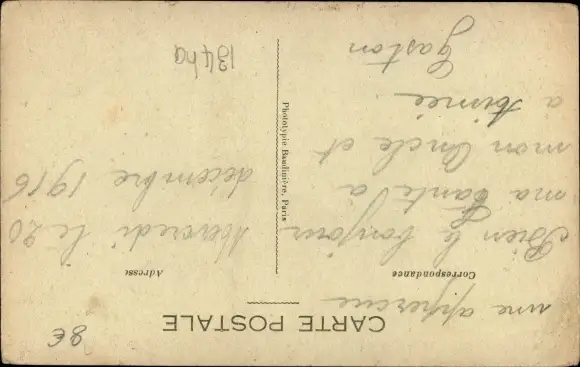 CARTE POSTALE
une apperçue
Correspondance
Adresse
Bien le bonjour
ma tante à
mon Oncle et
a Aimée
Gaston
Mercredi le 20
décembre 1916
Phototypie Baudinière, Paris
134ha
8€